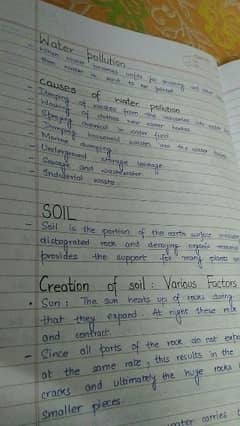 Water pollution
- When water becomes unfit for drinking and other
then water is said to be
Causes of water pollution
- Dumping of wastes from the industries into
- Washing of clothes near water bodies
- chemical in water
- Dumping household wastes into the water
- Marine dumping
- Underground storage leakage
- Sewage and wastewater
- Industrial waste.
SOIL
- Soil is the portion of the earth surface
distagrated rock and decaying organic
provides the support for many plants
Creation of soil : Various Factors
• Sun : The sun heats up of rocks during
that they expand. At night these
and contract.
- Since all parts of the rock do not
at the same rate, this results in the
cracks and ultimately the huge rocks
smaller pieces.
water carries